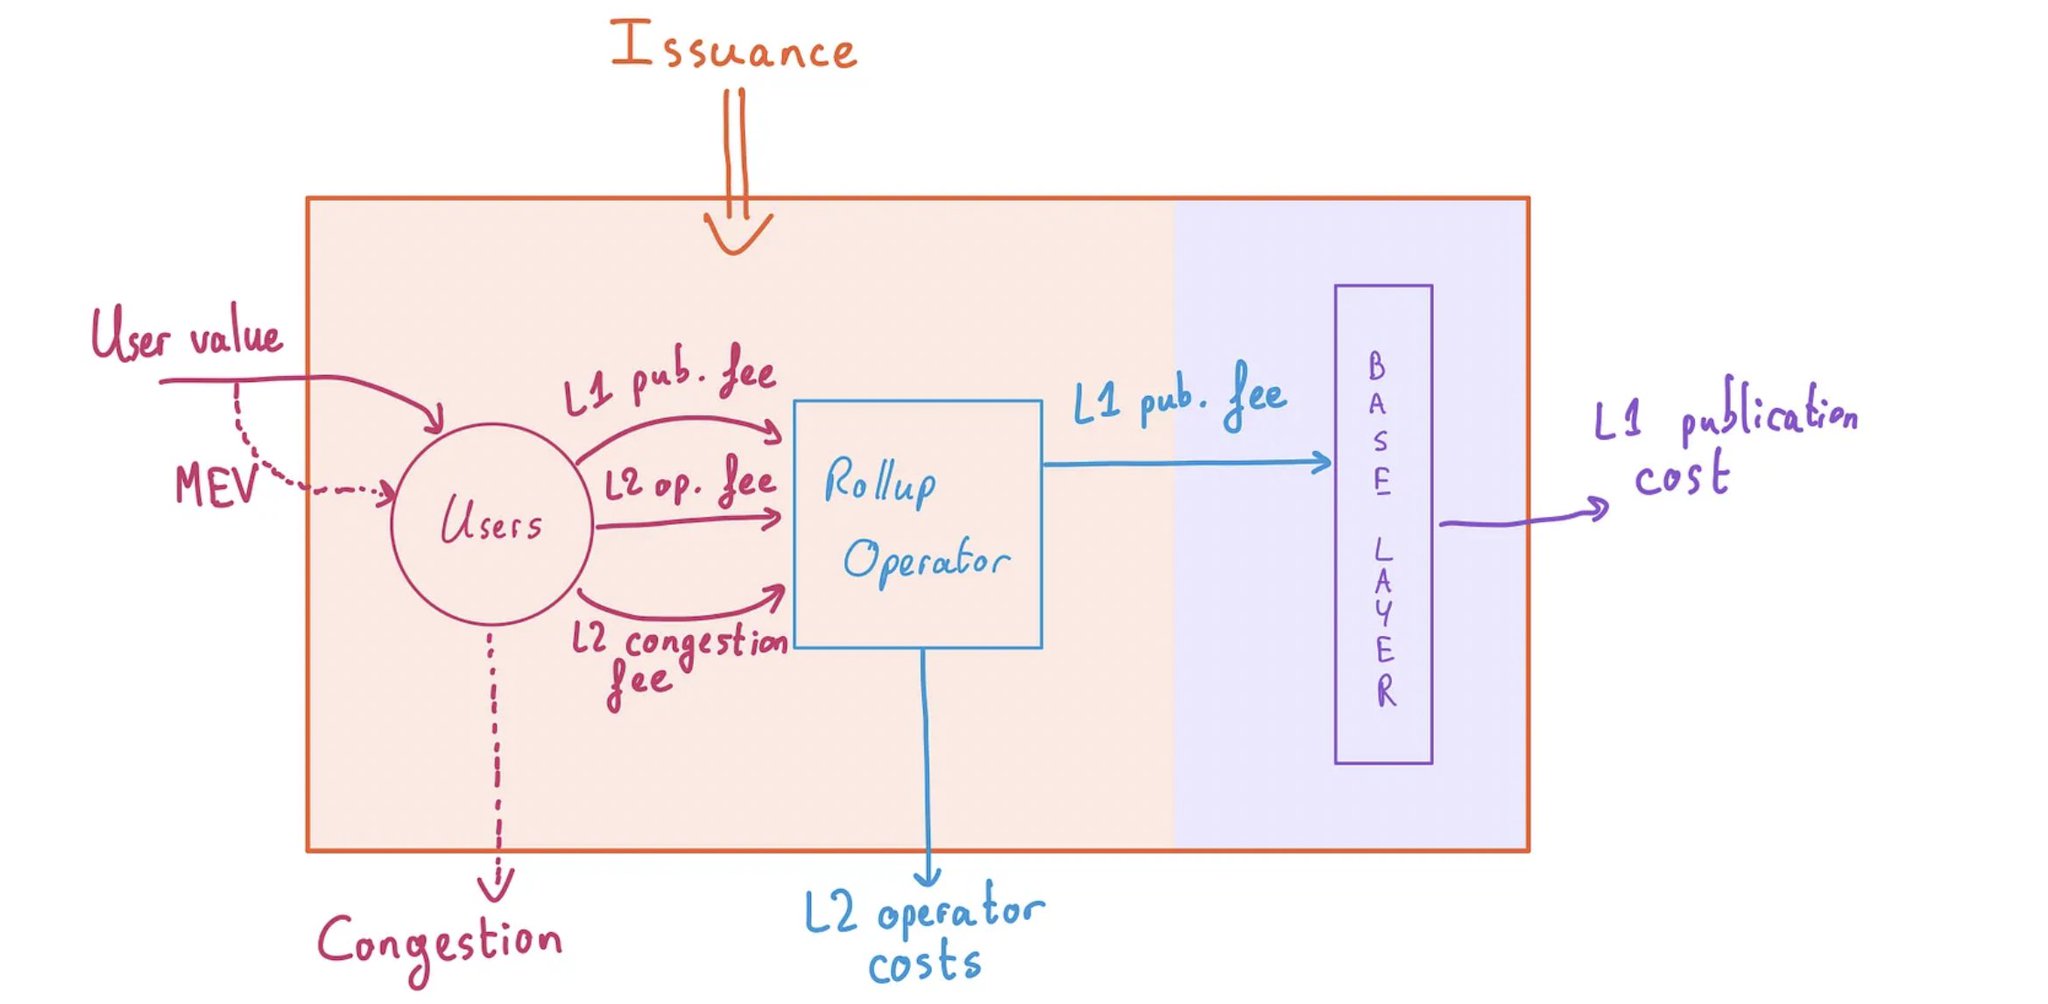 Issuance
User value
MEV
Users
L1 pub. fee
L2 op. fee
L2 congestion
fee
Rollup
Operator
L1 pub. fee
BASE LAYER
L1 publication
cost
Congestion
L2 operator
costs